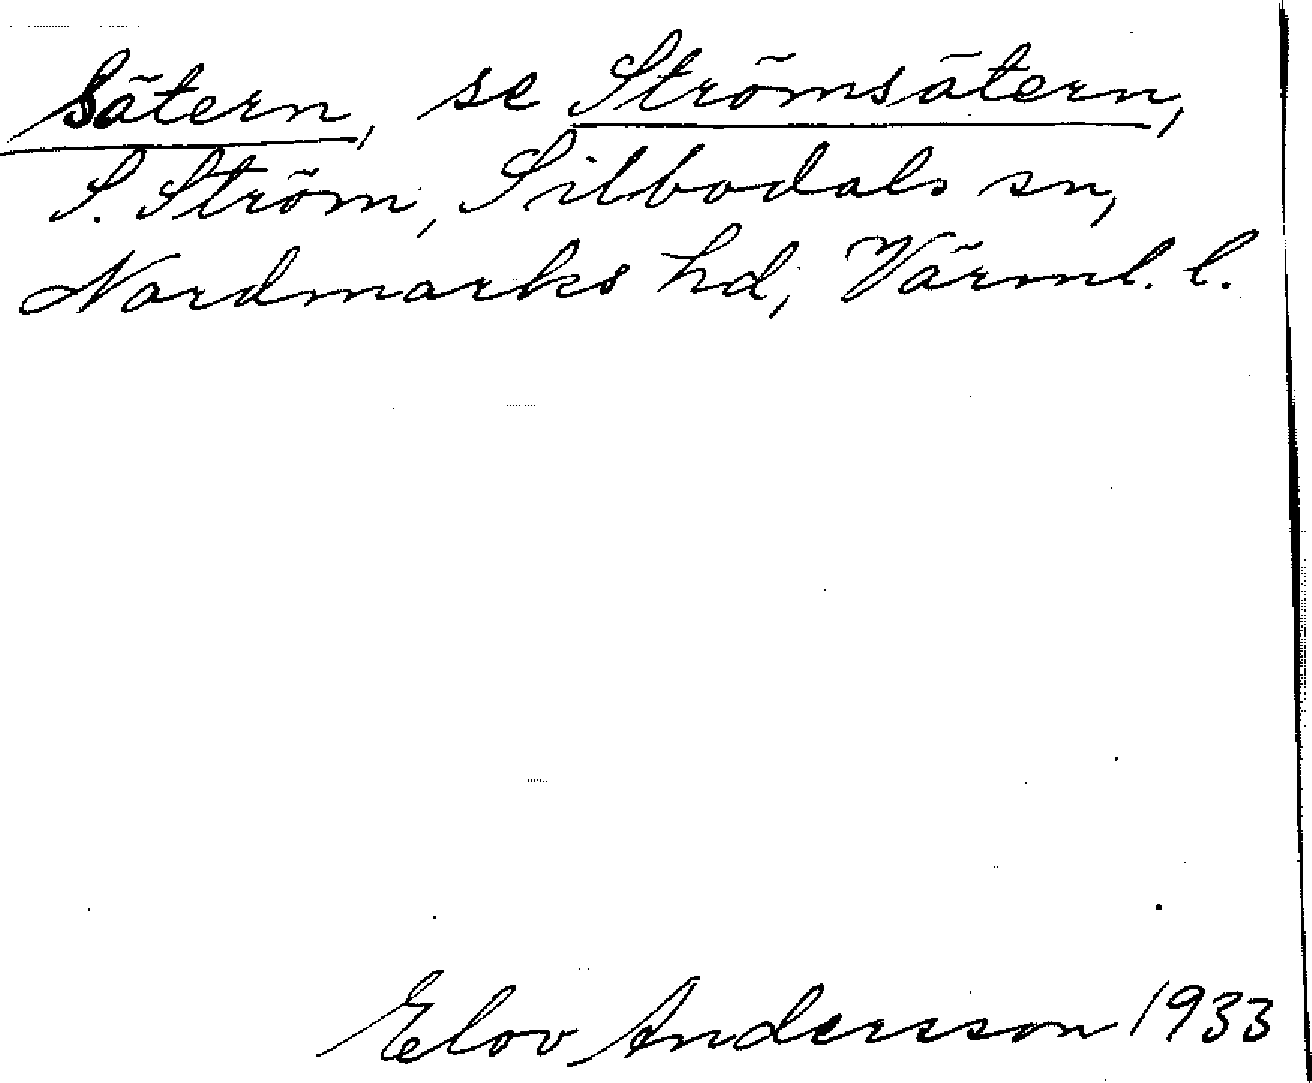 Sätern, se Strömsätern,
S. Ström, Silbodals sn,
Nordmarks hd, Värml. l.
Elov Andersson 1933